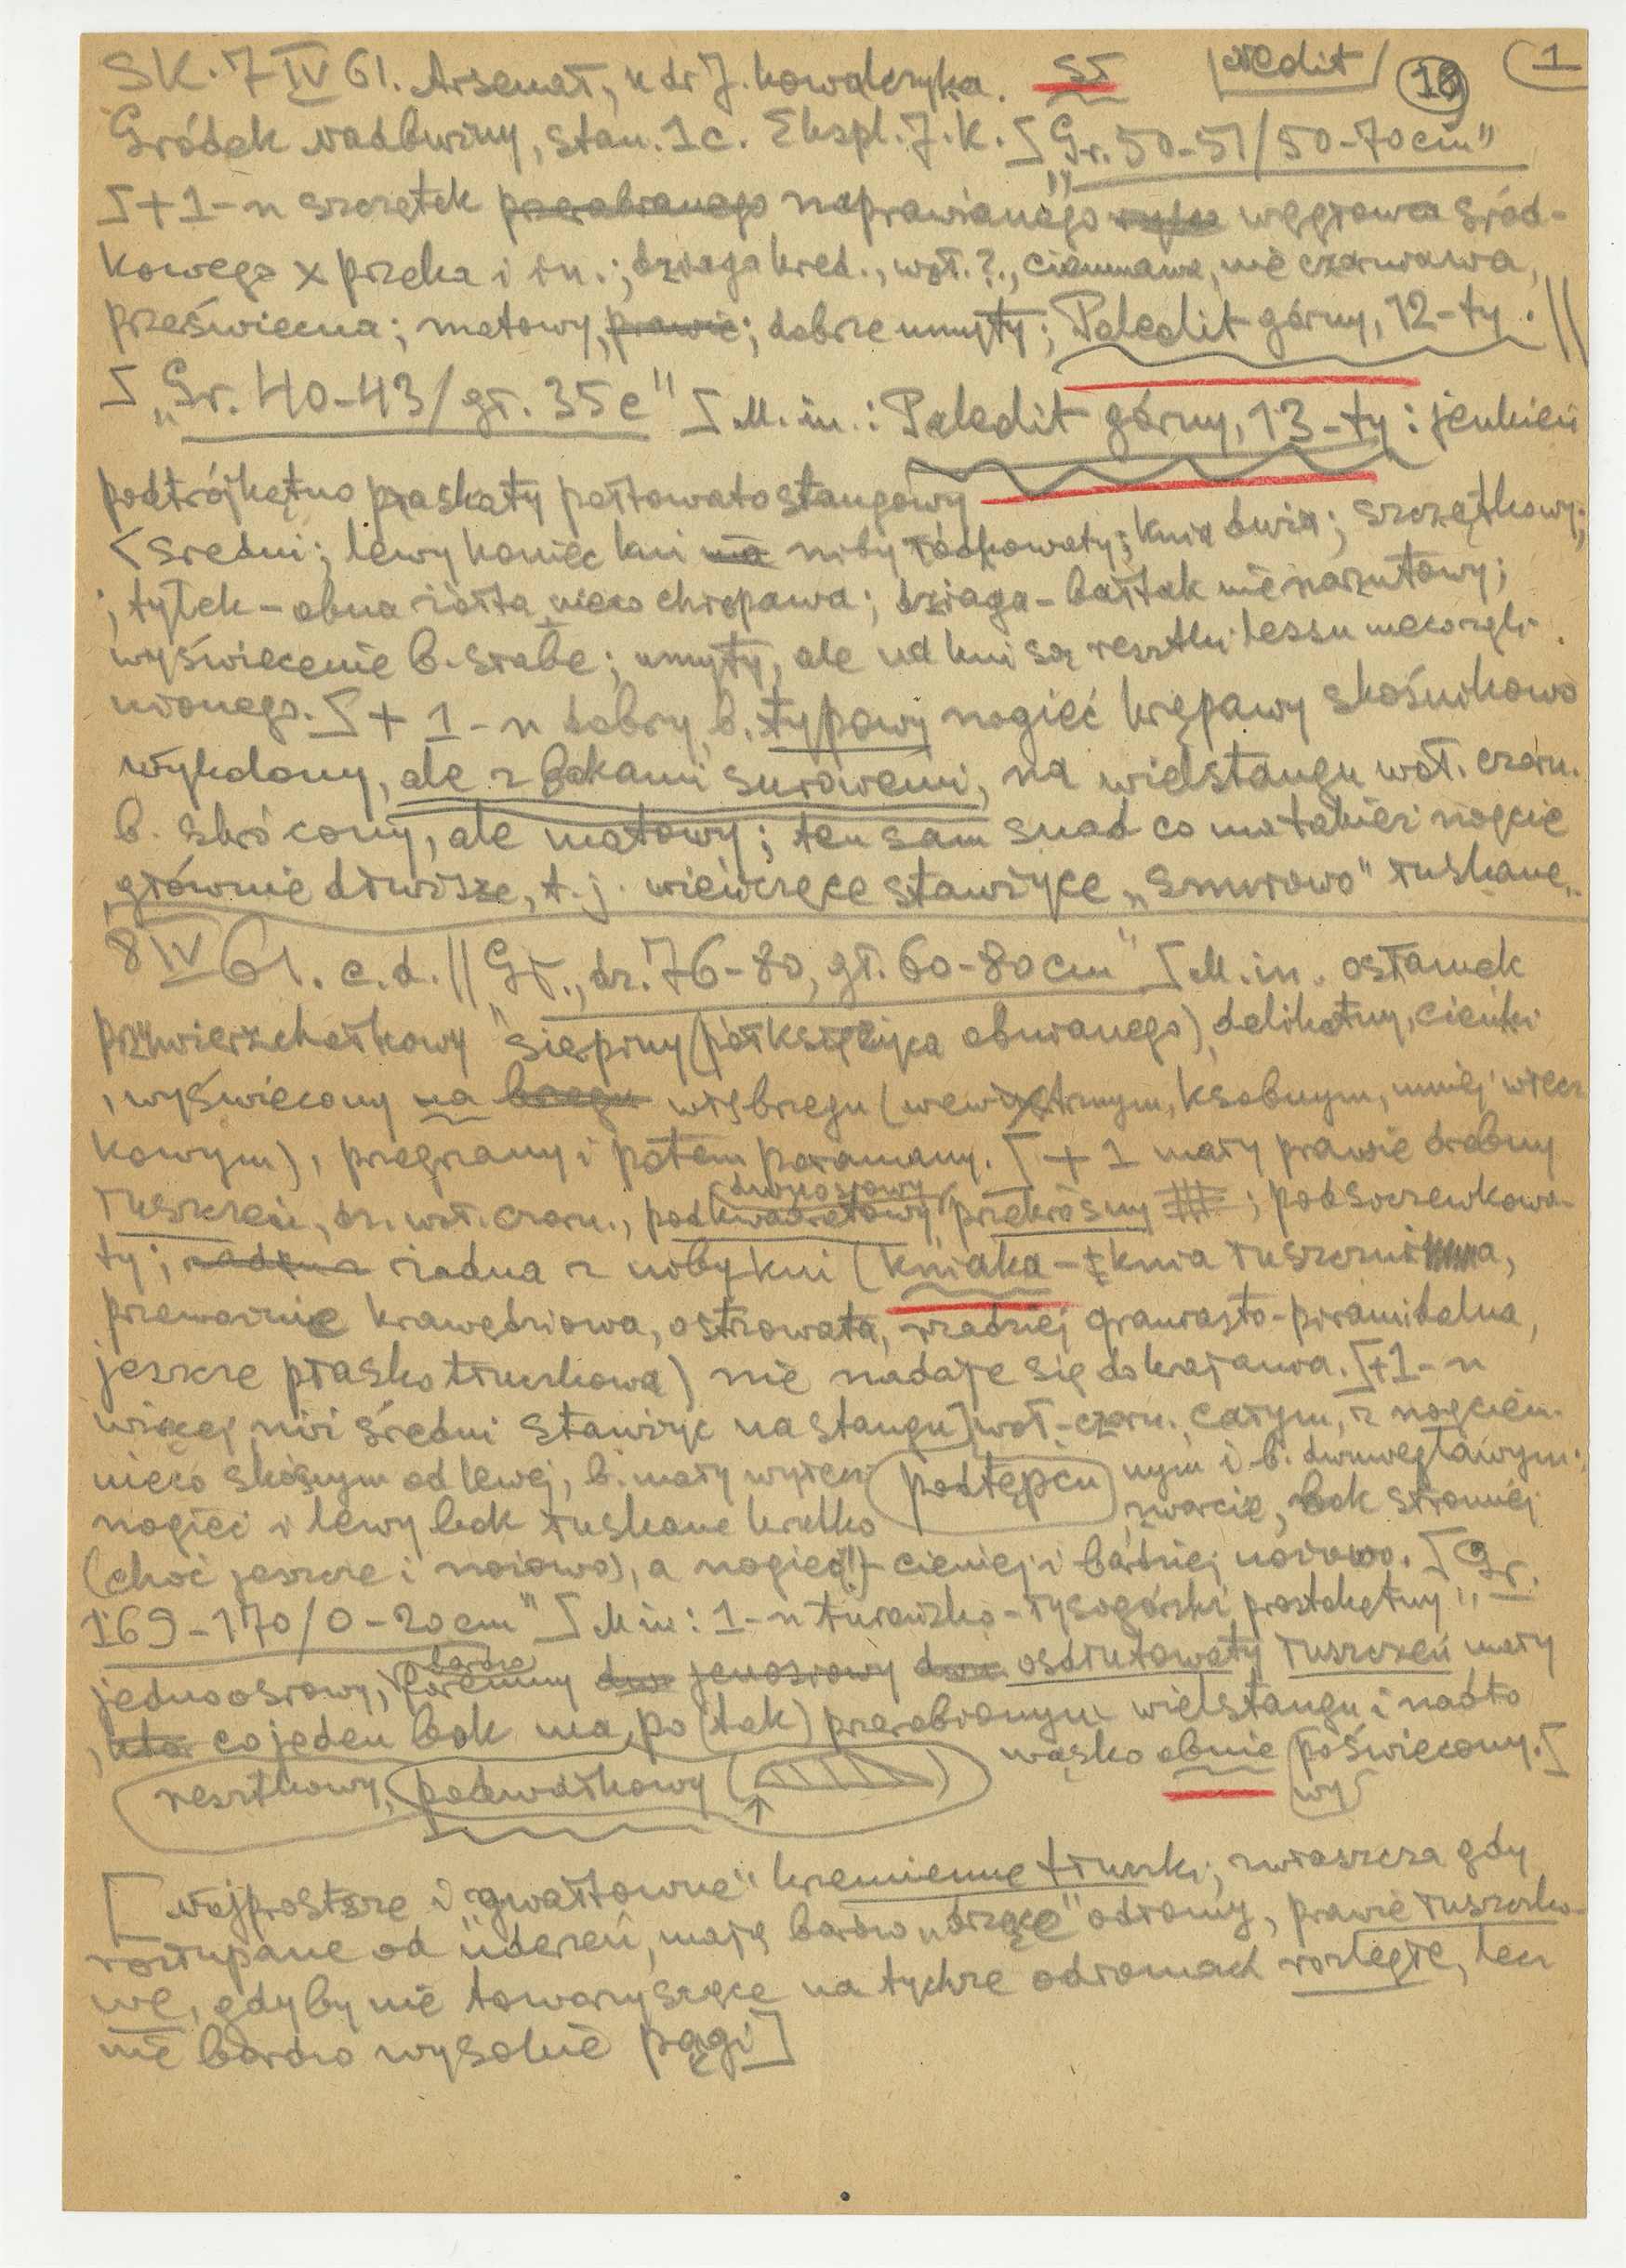 SK. 7 IV 61. Arsenał, u dr J. Kowalczyka. SŁ Nedit 1
Gródek Nadbużny, stan. 1c. Ekspl. J. K. „Gr. 50-51/50-70cm”
+ 1-n szczętek naprawianego węgłowca środ-
kowego x przeka i in.; dziaga kred., woł.?, ciemnawa, nie czarniawa,
przeświecna; matowy, prawie; dobrze umyty; Paledit górny, 12-ty.
„Gr. 40-43/gł. 35c” M. in.: Paledit górny, 13-ty: jenkień
podtrójkątno płaskaty pałtowatostangowy
średni; lewy koniec kni niby knia duża; szczętkowy;
; tyłek - obna żółta nieco chropawa; dziaga - bałtak nienarzutowy;
wyświecenie b. słabe; umyty, ale nad kni są resztki lessu nieco zgli-
nionego. + 1-n dobry, b. typowy nogieć krępawy skośnikowo
wyłdany, ale z bokami surowemi, na wielstangu woł. czarn.
b. skrócony, ale matowy; ten sam snad co ma takież nogcie
głównie dłuższe, t.j. wieńczące stawżyce „smużowo” łuskane.
8 IV 61. c.d. || „Gr., dz. 76-80, gł. 60-80cm” M. in. ostanek
przywierzchołkowy sierpiny (półksiężyca obwianego), delikatny, cienki
, wyświecony na brzegu (wewnętrznym, ksobnym, mniej więcz
kowym), przegrzany i potem połamany. + 1 mały prawie drobny
łuszczeń, dz. woł. czarn., podkwadratowy, dwuosiowy przekrośny; podsoczewkowa-
ty; żadna z niby kni (kniaka - knia łuszcznia,
przeważnie krawędziowa, ostrzowata, rzadziej graniasto-piramidalna,
jeszcze płasko tłuczkowa) nie nadaje się do krajania. +1-n
więcej niż średni stawżyc na stangu woł.-czarn., całym, z nogciem
nieco skośnym od lewej, b. mały wycięk podtępcu nym i b. dwuwęgławym:
nogieć i lewy bok łuskane krótko zwarcie, bok stromiej
(choć jeszcze i nożowo), a nogieć cieniej i bardziej nożowo. „Gr.
169-170/0-20cm” M in: 1-n turońsko-łysogórski prostokątny
jednoosiowy, bardzo foremny łuszczeń mały
, co jeden bok ma po (tak) przerobionym wielstangu i nadto
resztkowy, podwałkowy wąsko obnie poświecony. wy
[Najprostsze i „gwałtowne” krzemienne tłuczki, zwłaszcza gdy
rozłupane od uderzeń, mają bardzo „drzące” odłamy, prawie łuszczko-
we, gdyby nie towarzyszące na tychże odłomach rozległe, lecz
nie bardzo wysokie pęgi]